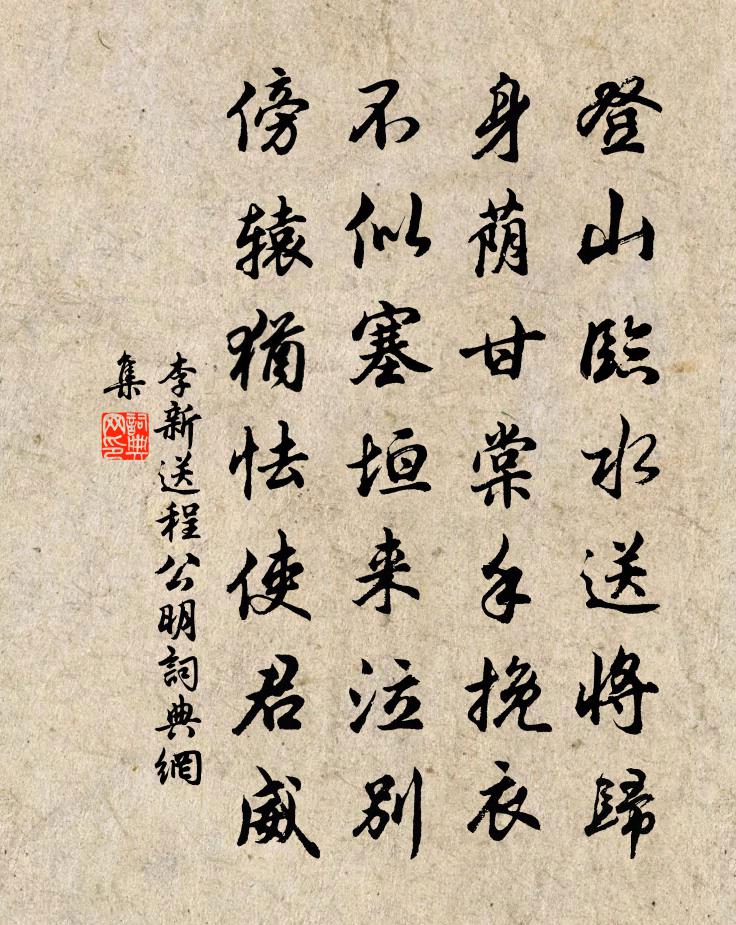 登山臨水送將歸
身荫甘棠手挽衣
不似塞垣来泣别
傍辕猶怯使君威
李新送程公明詞典網
集
詞典
网印